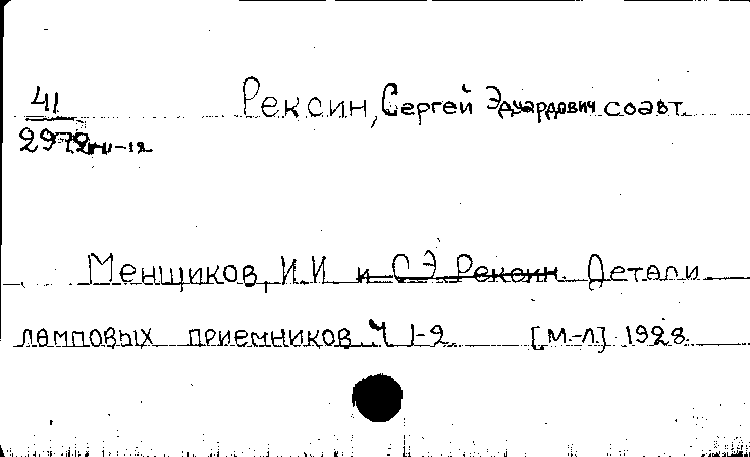 41
Рексин, Сергей Эдуардович соавт.
2972
Менщиков, И.И и С Э Рексин. Детали
ламповых приемников. Ч 1-2 [М.-Л.] 1928